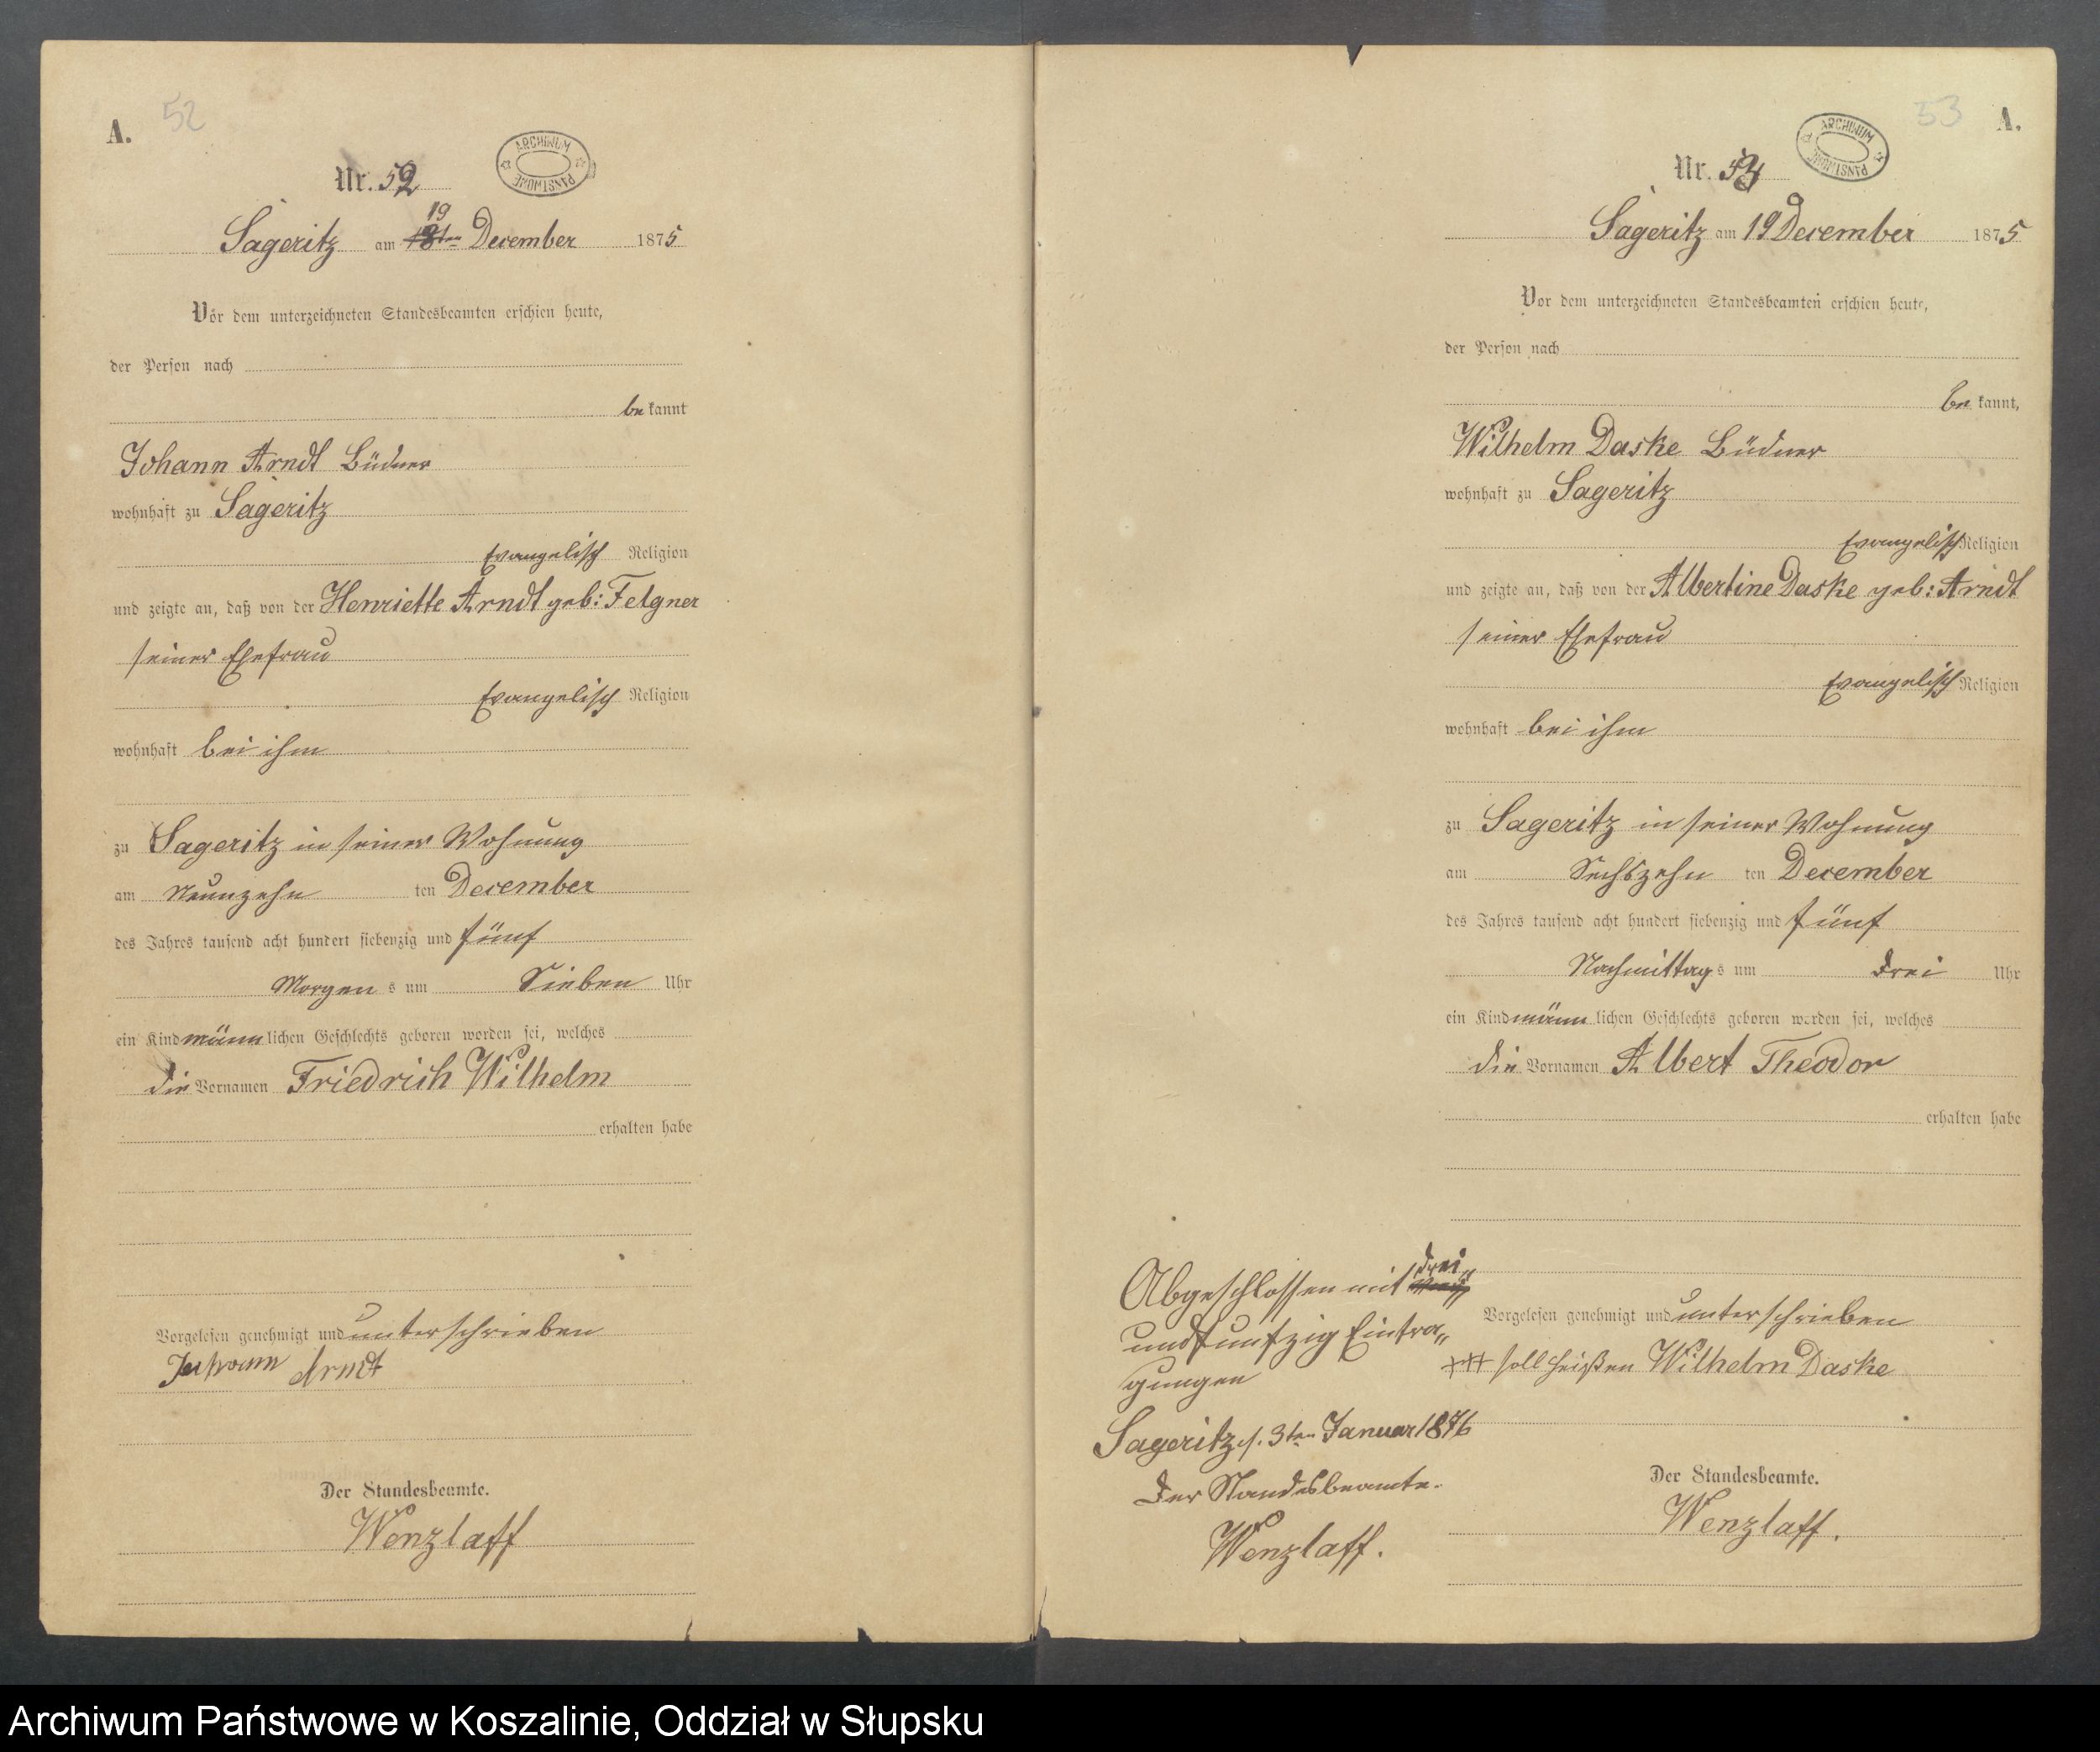 A. 52
ARCHIWUM PAŃSTWOWE
Nr. 52
19
Sageritz am 18ten December 1875
Vor dem unterzeichneten Standesbeamten erschien heute,
der Person nach
be kannt
Johann Arndt Büdner
wohnhaft zu Sageritz
Evangelisch Religion
und zeigte an, daß von der Henriette Arndt geb: Felgner
seiner Ehefrau
Evangelisch Religion
wohnhaft bei ihm
zu Sageritz in seiner Wohnung
am Neunzehn ten December
des Jahres tausend acht hundert siebenzig und fünf
Morgen s um Sieben Uhr
ein Kind männ lichen Geschlechts geboren worden sei, welches
die Vornamen Friedrich Wilhelm
erhalten habe
Vorgelesen genehmigt und unterschrieben
Johann Arndt
Der Standesbeamte.
Wenzlaff
53 A.
ARCHIWUM PAŃSTWOWE
Nr. 53
Sageritz am 19 December 1875
Vor dem unterzeichneten Standesbeamten erschien heute,
der Person nach
be kannt,
Wilhelm Daske Büdner
wohnhaft zu Sageritz
Evangelisch Religion
und zeigte an, daß von der Albertine Daske geb: Arndt
seiner Ehefrau
Evangelisch Religion
wohnhaft bei ihm
zu Sageritz in seiner Wohnung
am Sechszehn ten December
des Jahres tausend acht hundert siebenzig und fünf
Nachmittag s um drei Uhr
ein Kind männ lichen Geschlechts geboren worden sei, welches
die Vornamen Albert Theodor
erhalten habe
Vorgelesen genehmigt und unterschrieben
+++ soll heißen Wilhelm Daske
Der Standesbeamte.
Wenzlaff.
drei„
Abgeschlossen mit
und funfzig Eintra„
gungen
Sageritz d. 3ten Januar 1876
Der Standesbeamte.
Wenzlaff.
Archiwum Państwowe w Koszalinie, Oddział w Słupsku